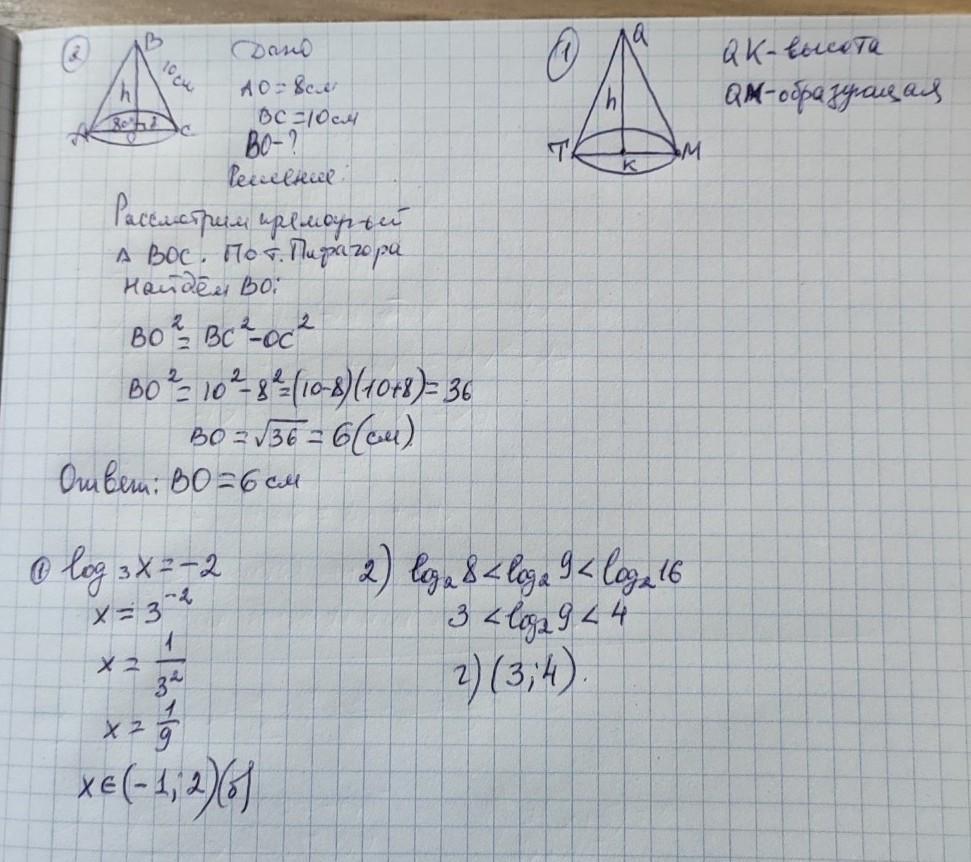 ②
B
10 см
h
A
8см
C
O
Дано
AO = 8см
BC = 10см
BO - ?
Решение:
Рассмотрим прямоуг-ый
△ BOC. По т. Пифагора
найдём BO:
BO² = BC² - OC²
BO² = 10² - 8² = (10-8)(10+8) = 36
BO = √36 = 6(см)
Ответ: BO = 6 см
①
Q
h
T
K
M
QK - высота
QM - образующая
① log₃x = -2
x = 3⁻²
x = 1/3²
x = 1/9
x ∈ (-1; 2) (б)
2) log₂8 < log₂9 < log₂16
3 < log₂9 < 4
г) (3; 4).